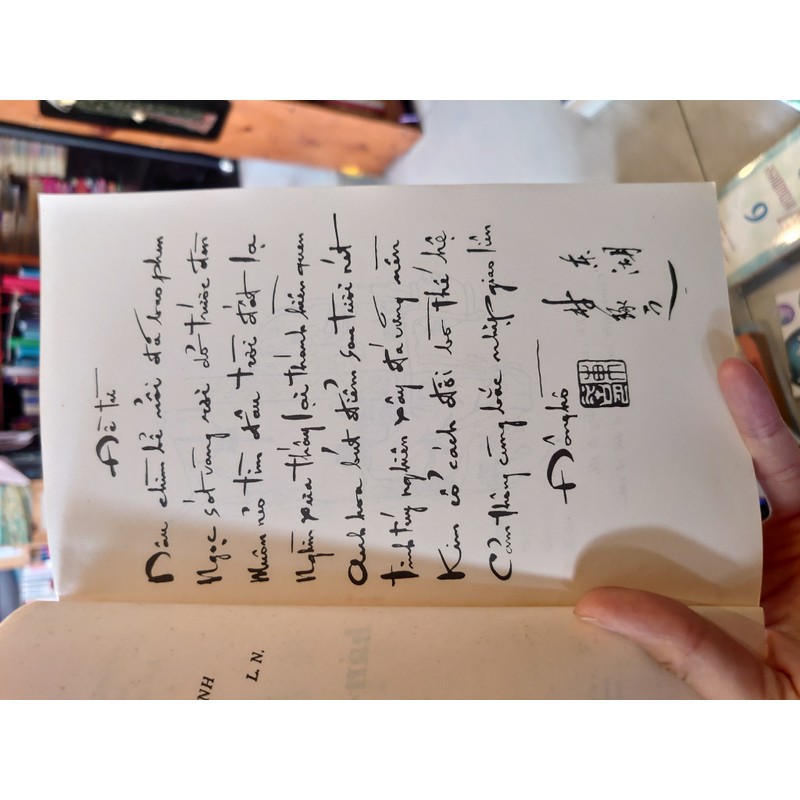 NH
L. N.
hán
Đề từ
Dâu chìm bể nổi đã bao phen
Ngọc sót vàng rơi dỏ trước đèn
Muôn nẻo tìm đâu trời đất lạ
Nghìn xưa thấy lại thánh hiền quen
Anh hoa bút điểm son tươi nét
Tinh túy nghiên xây đá vững nền
Kim cổ cách đôi bờ thế hệ
Cảm thông cùng bắc nhịp giao liên
Đông hồ
東湖
东湖
林琢
6